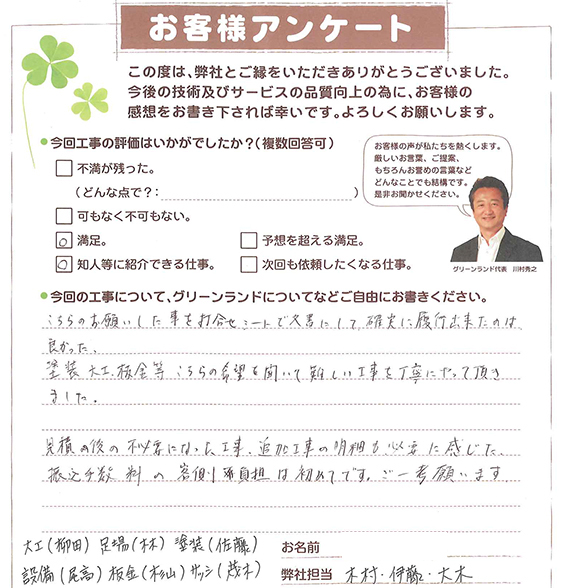 お客様アンケート
この度は、弊社とご縁をいただきありがとうございました。
今後の技術及びサービスの品質向上の為に、お客様の
感想をお書き下されば幸いです。よろしくお願いします。
●今回工事の評価はいかがでしたか?(複数回答可)
不満が残った。
(どんな点で?: )
可もなく不可もない。
満足。
予想を超える満足。
知人等に紹介できる仕事。
次回も依頼したくなる仕事。
お客様の声が私たちを熱くします。
厳しいお言葉、ご提案、
もちろんお誉めの言葉など
どんなことでも結構です。
是非お聞かせください。
グリーンランド代表 川村秀之
●今回の工事について、グリーンランドについてなどご自由にお書きください。
こちらのお願いした事を打合せシートで文書にして確実に履行出来たのは、
良かった、
塗装大工、板金等こちらの希望を聞いて難しい工事を丁寧にやって頂き
ました。
見積の後の不必要になった工事、追加工事の明細も必要に感じた、
振込手数料の客側負担は初めてです。ご一考願います
大工(柳田) 足場(林) 塗装(佐藤)
設備(尾高) 板金(杉山) サッシ(茂木)
お名前
弊社担当 木村・伊藤・大木